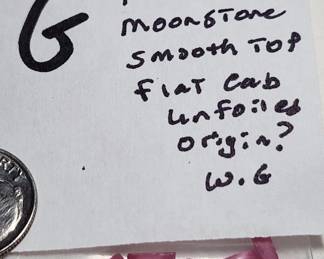 G
moonstone
smooth Top
flat cab
unfoiled
origin?
W.G